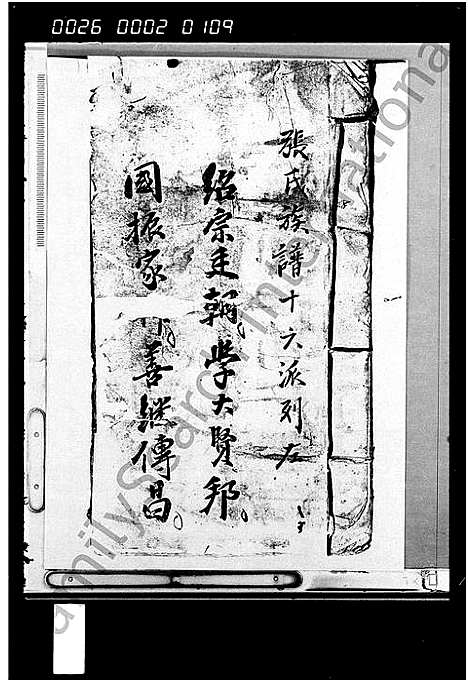 0026 0002 0109
張氏族譜十六派列左
紹宗廷朝學大賢邦
國振家 善繼傳昌